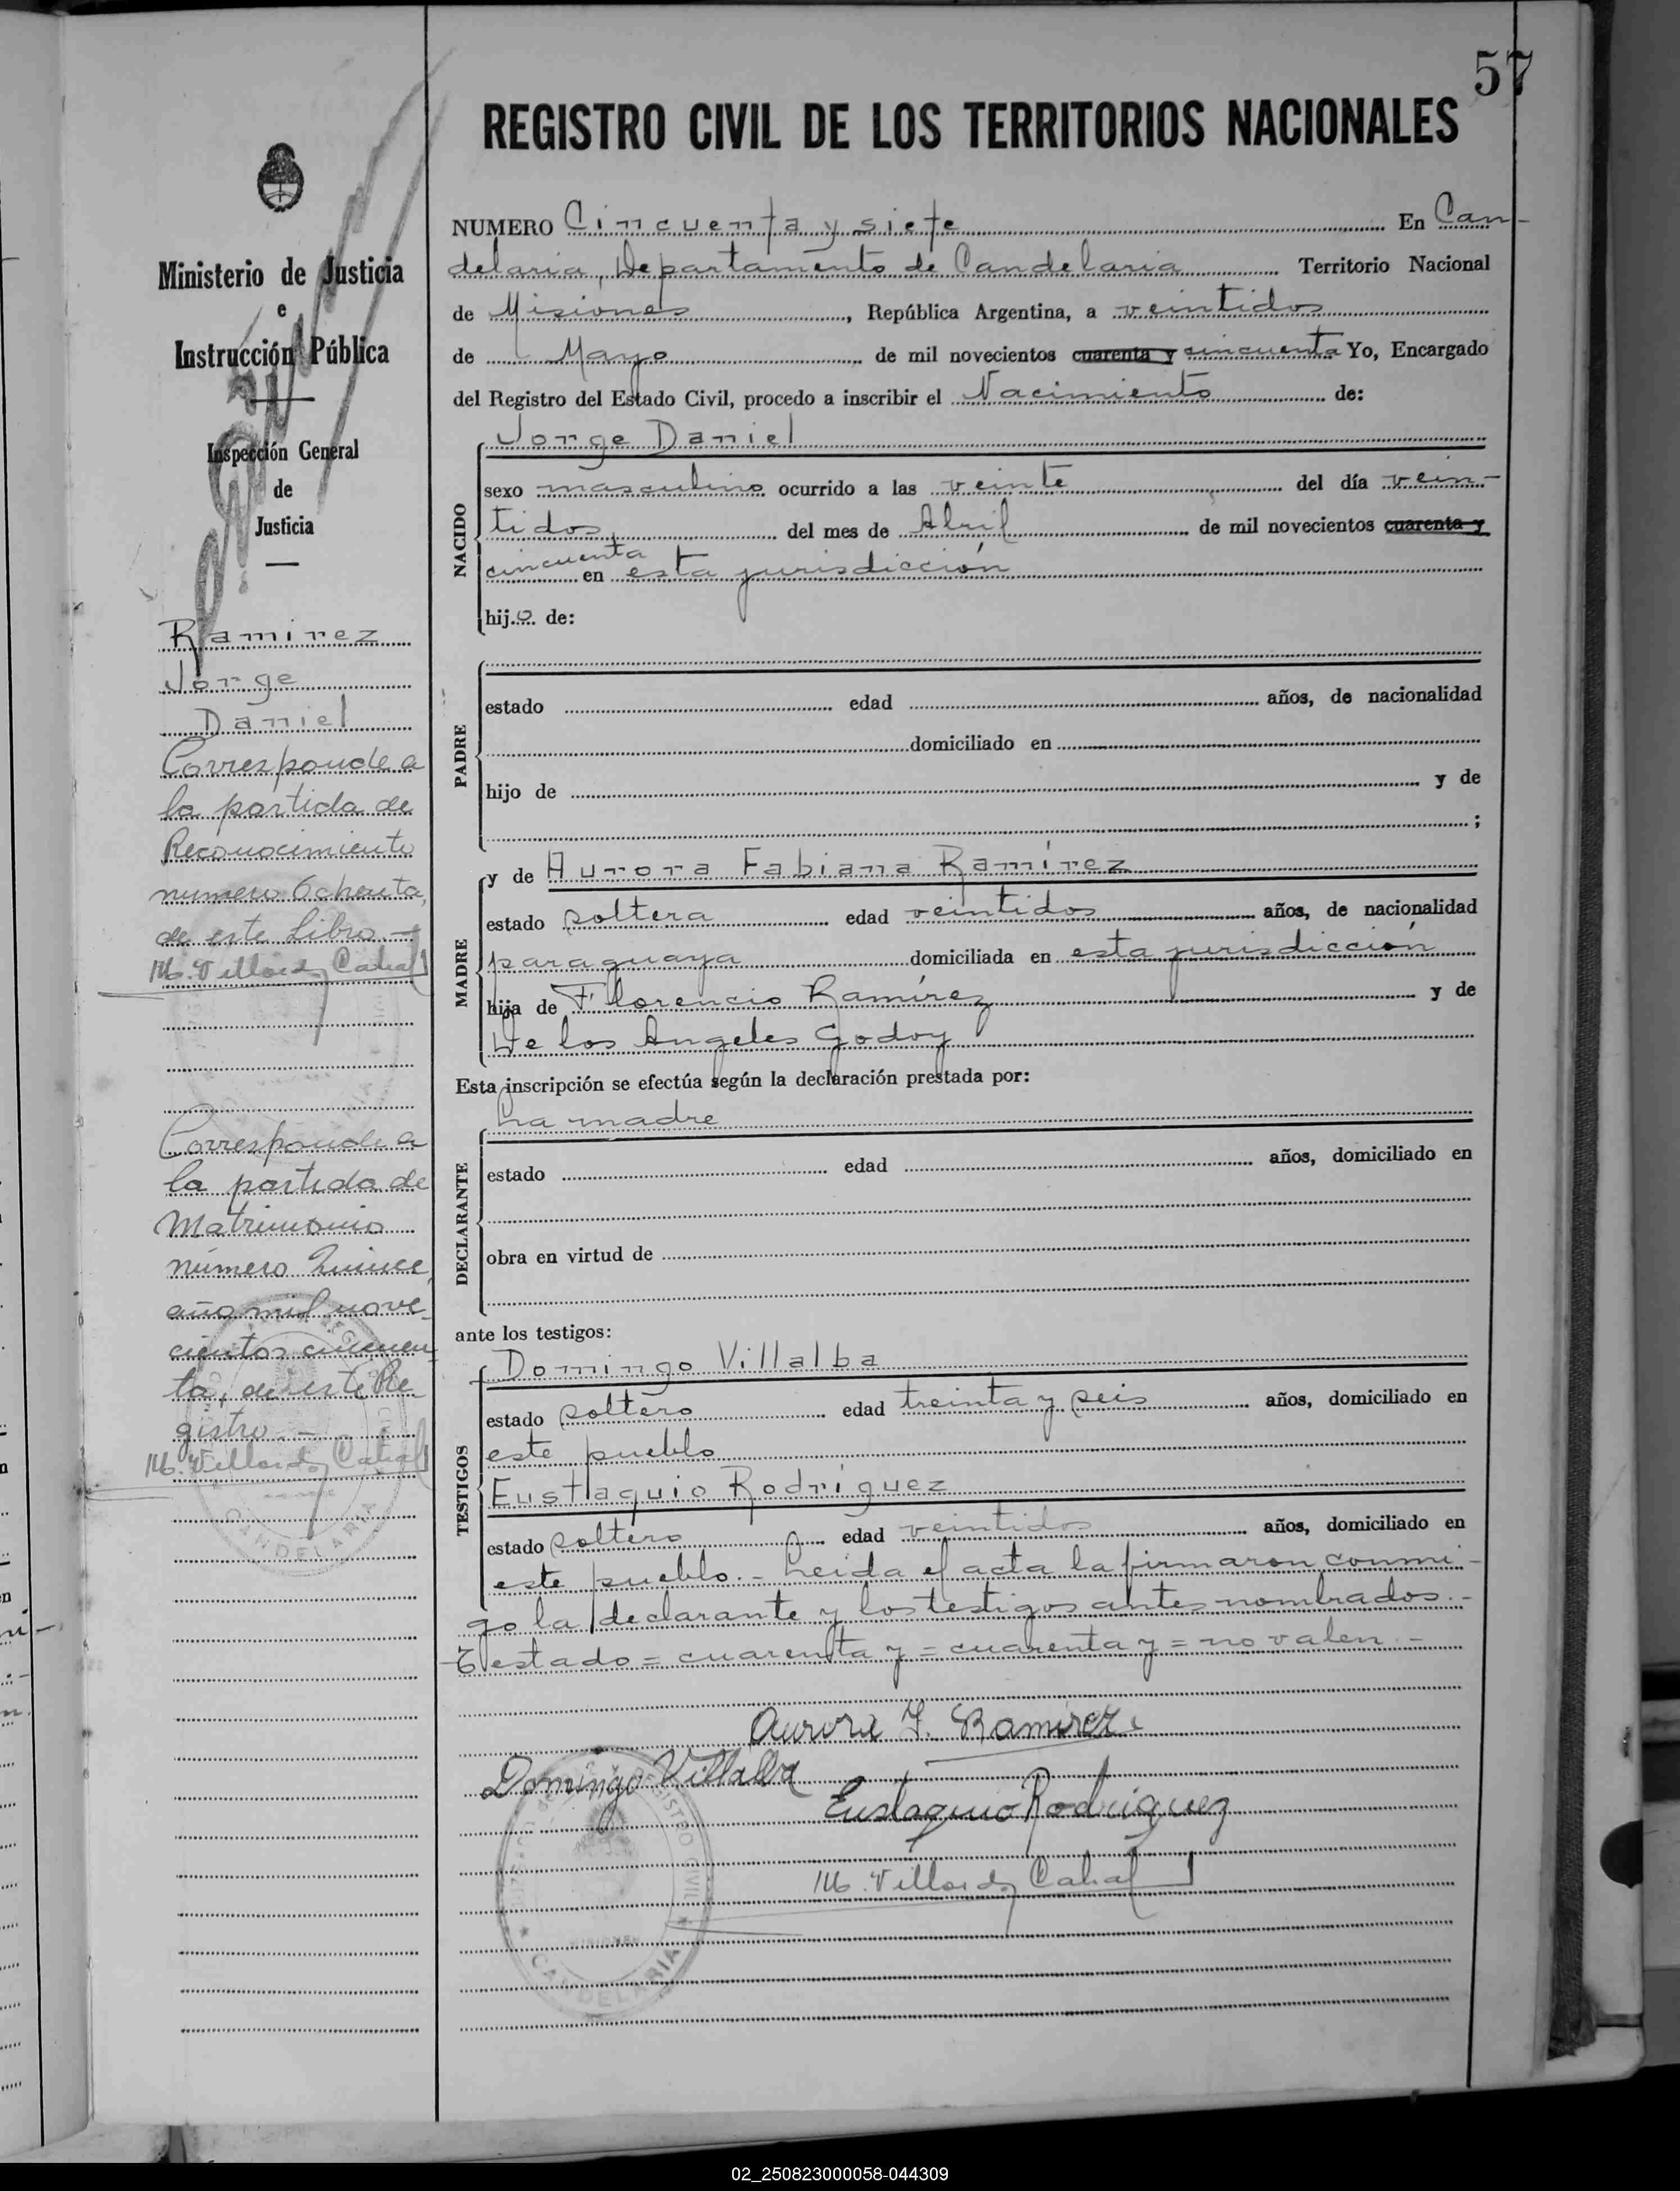 57
REGISTRO CIVIL DE LOS TERRITORIOS NACIONALES
Ministerio de Justicia
e
Instrucción Pública
Inspección General
de
Justicia
Ramirez
Jorge
Daniel
Corresponde a
la partida de
Reconocimiento
numero Ochenta,
de este Libro.-
M. Villordo Cabral
Corresponde a
la partida de
Matrimonio
número Quince,
año mil nove-
cientos cincuen
ta, de este Re
gistro.-
M. Villordo Cabral
CANDELARIA
NUMERO Cincuenta y siete En Can-
delaria, Departamento de Candelaria Territorio Nacional
de Misiones, República Argentina, a veintidos
de Mayo de mil novecientos cuarenta y cincuenta Yo, Encargado
del Registro del Estado Civil, procedo a inscribir el Nacimiento de:
Jorge Daniel
NACIDO
sexo masculino ocurrido a las veinte del día vein-
tidos del mes de Abril de mil novecientos cuarenta y
cincuenta en esta jurisdicción
hijo de:
PADRE
estado edad años, de nacionalidad
domiciliado en
hijo de y de
;
MADRE
y de Aurora Fabiana Ramírez
estado soltera edad veintidos años, de nacionalidad
paraguaya domiciliada en esta jurisdicción
hija de Florencio Ramírez y de
De los Angeles Godoy
Esta inscripción se efectúa según la declaración prestada por:
La madre
DECLARANTE
estado edad años, domiciliado en
obra en virtud de
ante los testigos:
TESTIGOS
Domingo Villalba
estado soltero edad treinta y seis años, domiciliado en
este pueblo
Eustaquio Rodríguez
estado soltero edad veintidos años, domiciliado en
este pueblo.- Leida el acta la firmaron conmi-
go la declarante y los testigos antes nombrados.-
Testado = cuarenta y = cuarenta y = no valen.-
Aurora F. Ramirez
Domingo Villalba
Eustaquio Rodriguez
M. Villordo Cabral
REGISTRO CIVIL
MISIONES
CANDELARIA
02_250823000058-044309